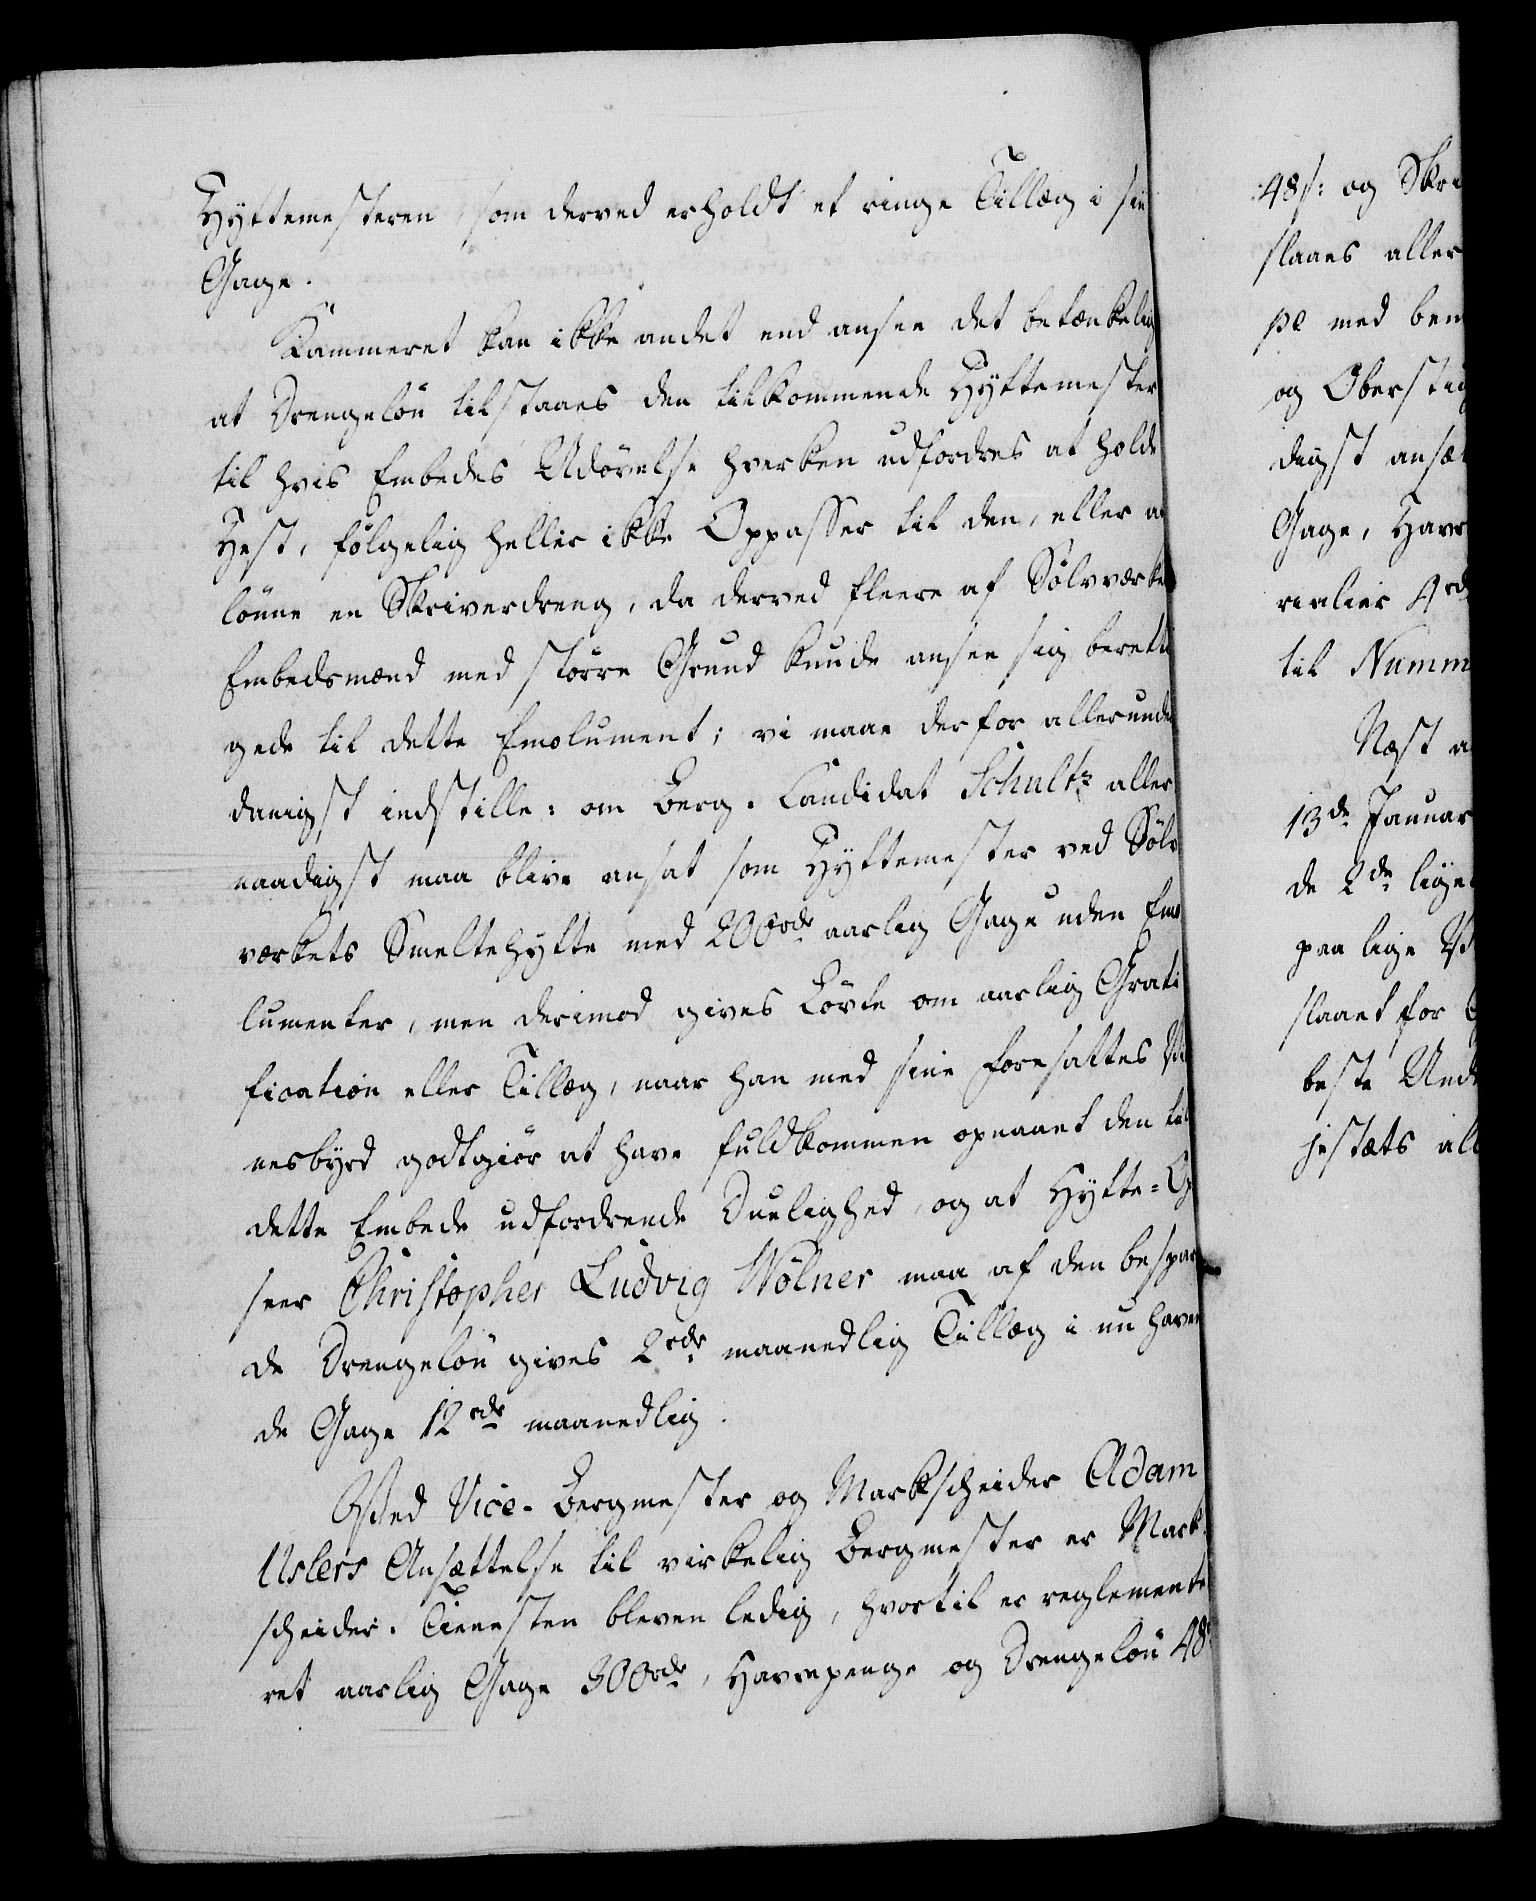 Hyttemesteren, som derved erholdt et ringe Tillæg i sin
Gage.
Kammeret kan ikke andet end ansee det betænkelig
at Drengelön tilstaaes den tilkommende Hyttemester
til hvis Embedes Udövelse hverken udfordres at holde
Hest, fölgelig heller ikke Oppasser til den, eller at
lönne en Skriverdreng, da derved fleere af Sölvværkets
Embedsmænd med större Grund kunde ansee sig beretti
gede til dette Emolument; vi maae derfor allerunder
danigst indstille: om Berg-Candidat Schultz aller
naadigst maa blive ansat som Hyttemester ved Sölv
værkets Smeltehytte med 200rdr aarlig Gage uden Emo
lumenter, men derimod gives Löfte om aarlig Grati
fication eller Tillæg, naar han med sine Foresattes Vid
nesbyrd godtgiör at have fuldkommen opnaaet den til
dette Embede udfordrende Duelighed, og at Hytte-Op
seer Christopher Ludvig Wölner maa af den bespar
de Drengelön gives 2rdr maanedlig Tillæg i nu haven
de Gage 12rdr maanedlig.
Ved Vice-Bergmester og Markscheider Adam
Uslers Ansættelse til virkelig Bergmester er Mark-
scheider-Tienesten bleven ledig, hvortil er reglemente
ret aarlig Gage 300rdr, Havrepenge og Drengelön 48
48s: og Skri
slaaes aller
pe med bem
og Oberstig
digst ansæt
Gage, Havr
rialier 4rd
til Numm
Næst a
13de Januar
de 2de lige
paa lige V
slaaet for
beste Und
jestæts all